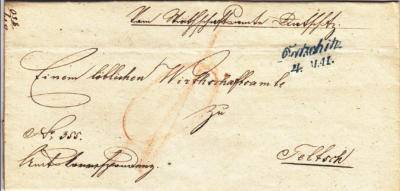 Vom Wirthschaftsamte Datschitz.
Datschitz
4. MAI.
Einem löblichen Wirthschaftsamte
Zu
No. 355.
Teltsch
Amtscorrespondenz.